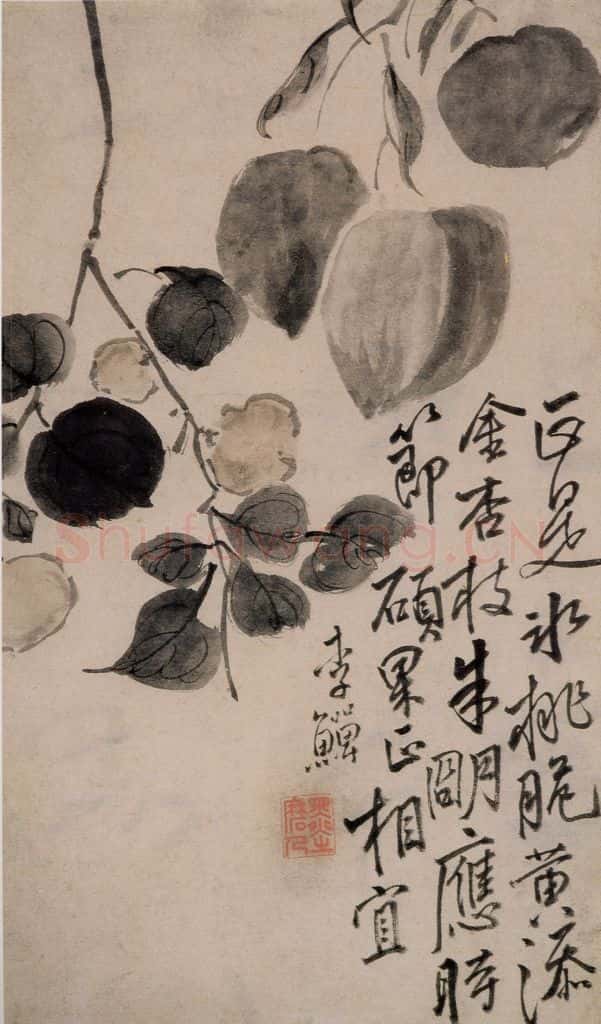 正是冰桃脆黄添
金杏枝朱朙應時
節碩果正相宜
李鱓
Shufawang.CN